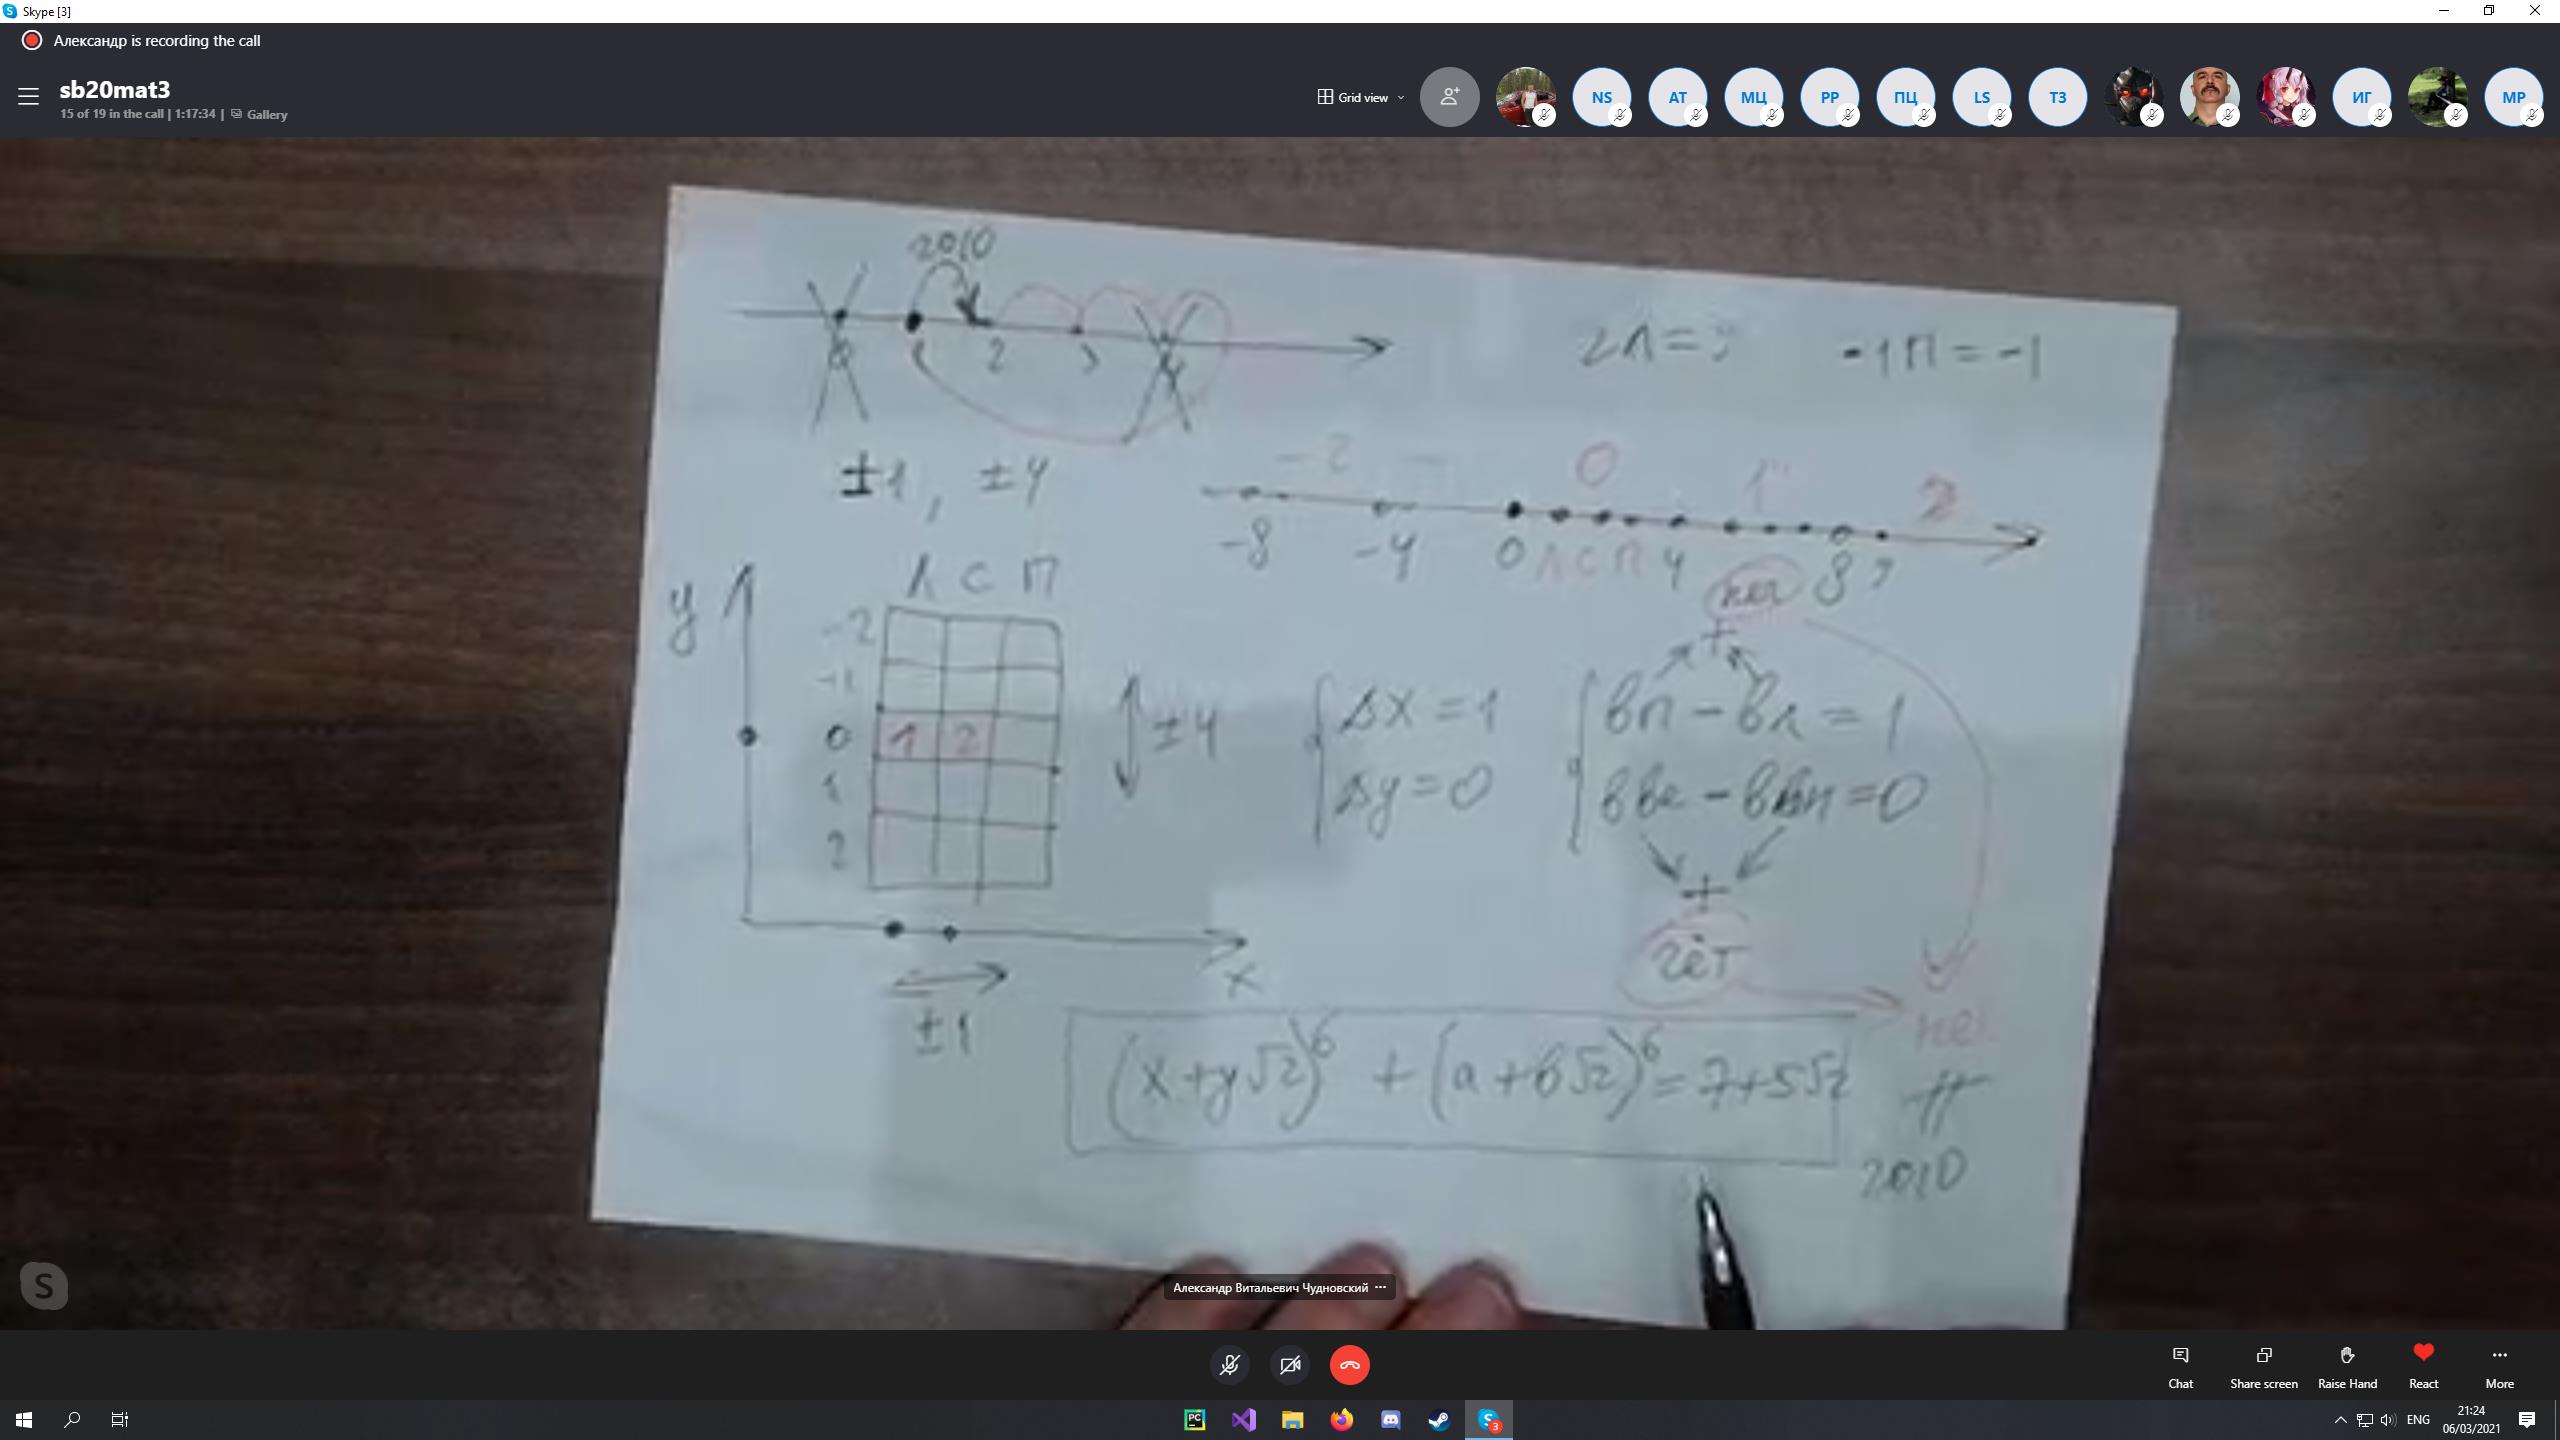 Skype [3]
Александр is recording the call
sb20mat3
15 of 19 in the call | 1:17:34 | Gallery
Grid view
NS
AT
МЦ
PP
ПЦ
LS
ТЗ
ИГ
MP
2010
2Л =
-1П = -1
0 1 2 3 4
±1, ±4
-2 0 1 2
-8 -4 0 Л С П 4 8 9
y
Л С П
-2
-1
0 1 2
1
2
±4
Δx = 1
Δy = 0
вп - вл = 1
+
чёт
x
±1
(x+y√2)⁶ + (a+b√2)⁶ = 7+5√2
2010
Александр Витальевич Чудновский
Chat
Share screen
Raise Hand
React
More
PC
3
ENG
21:24
06/03/2021